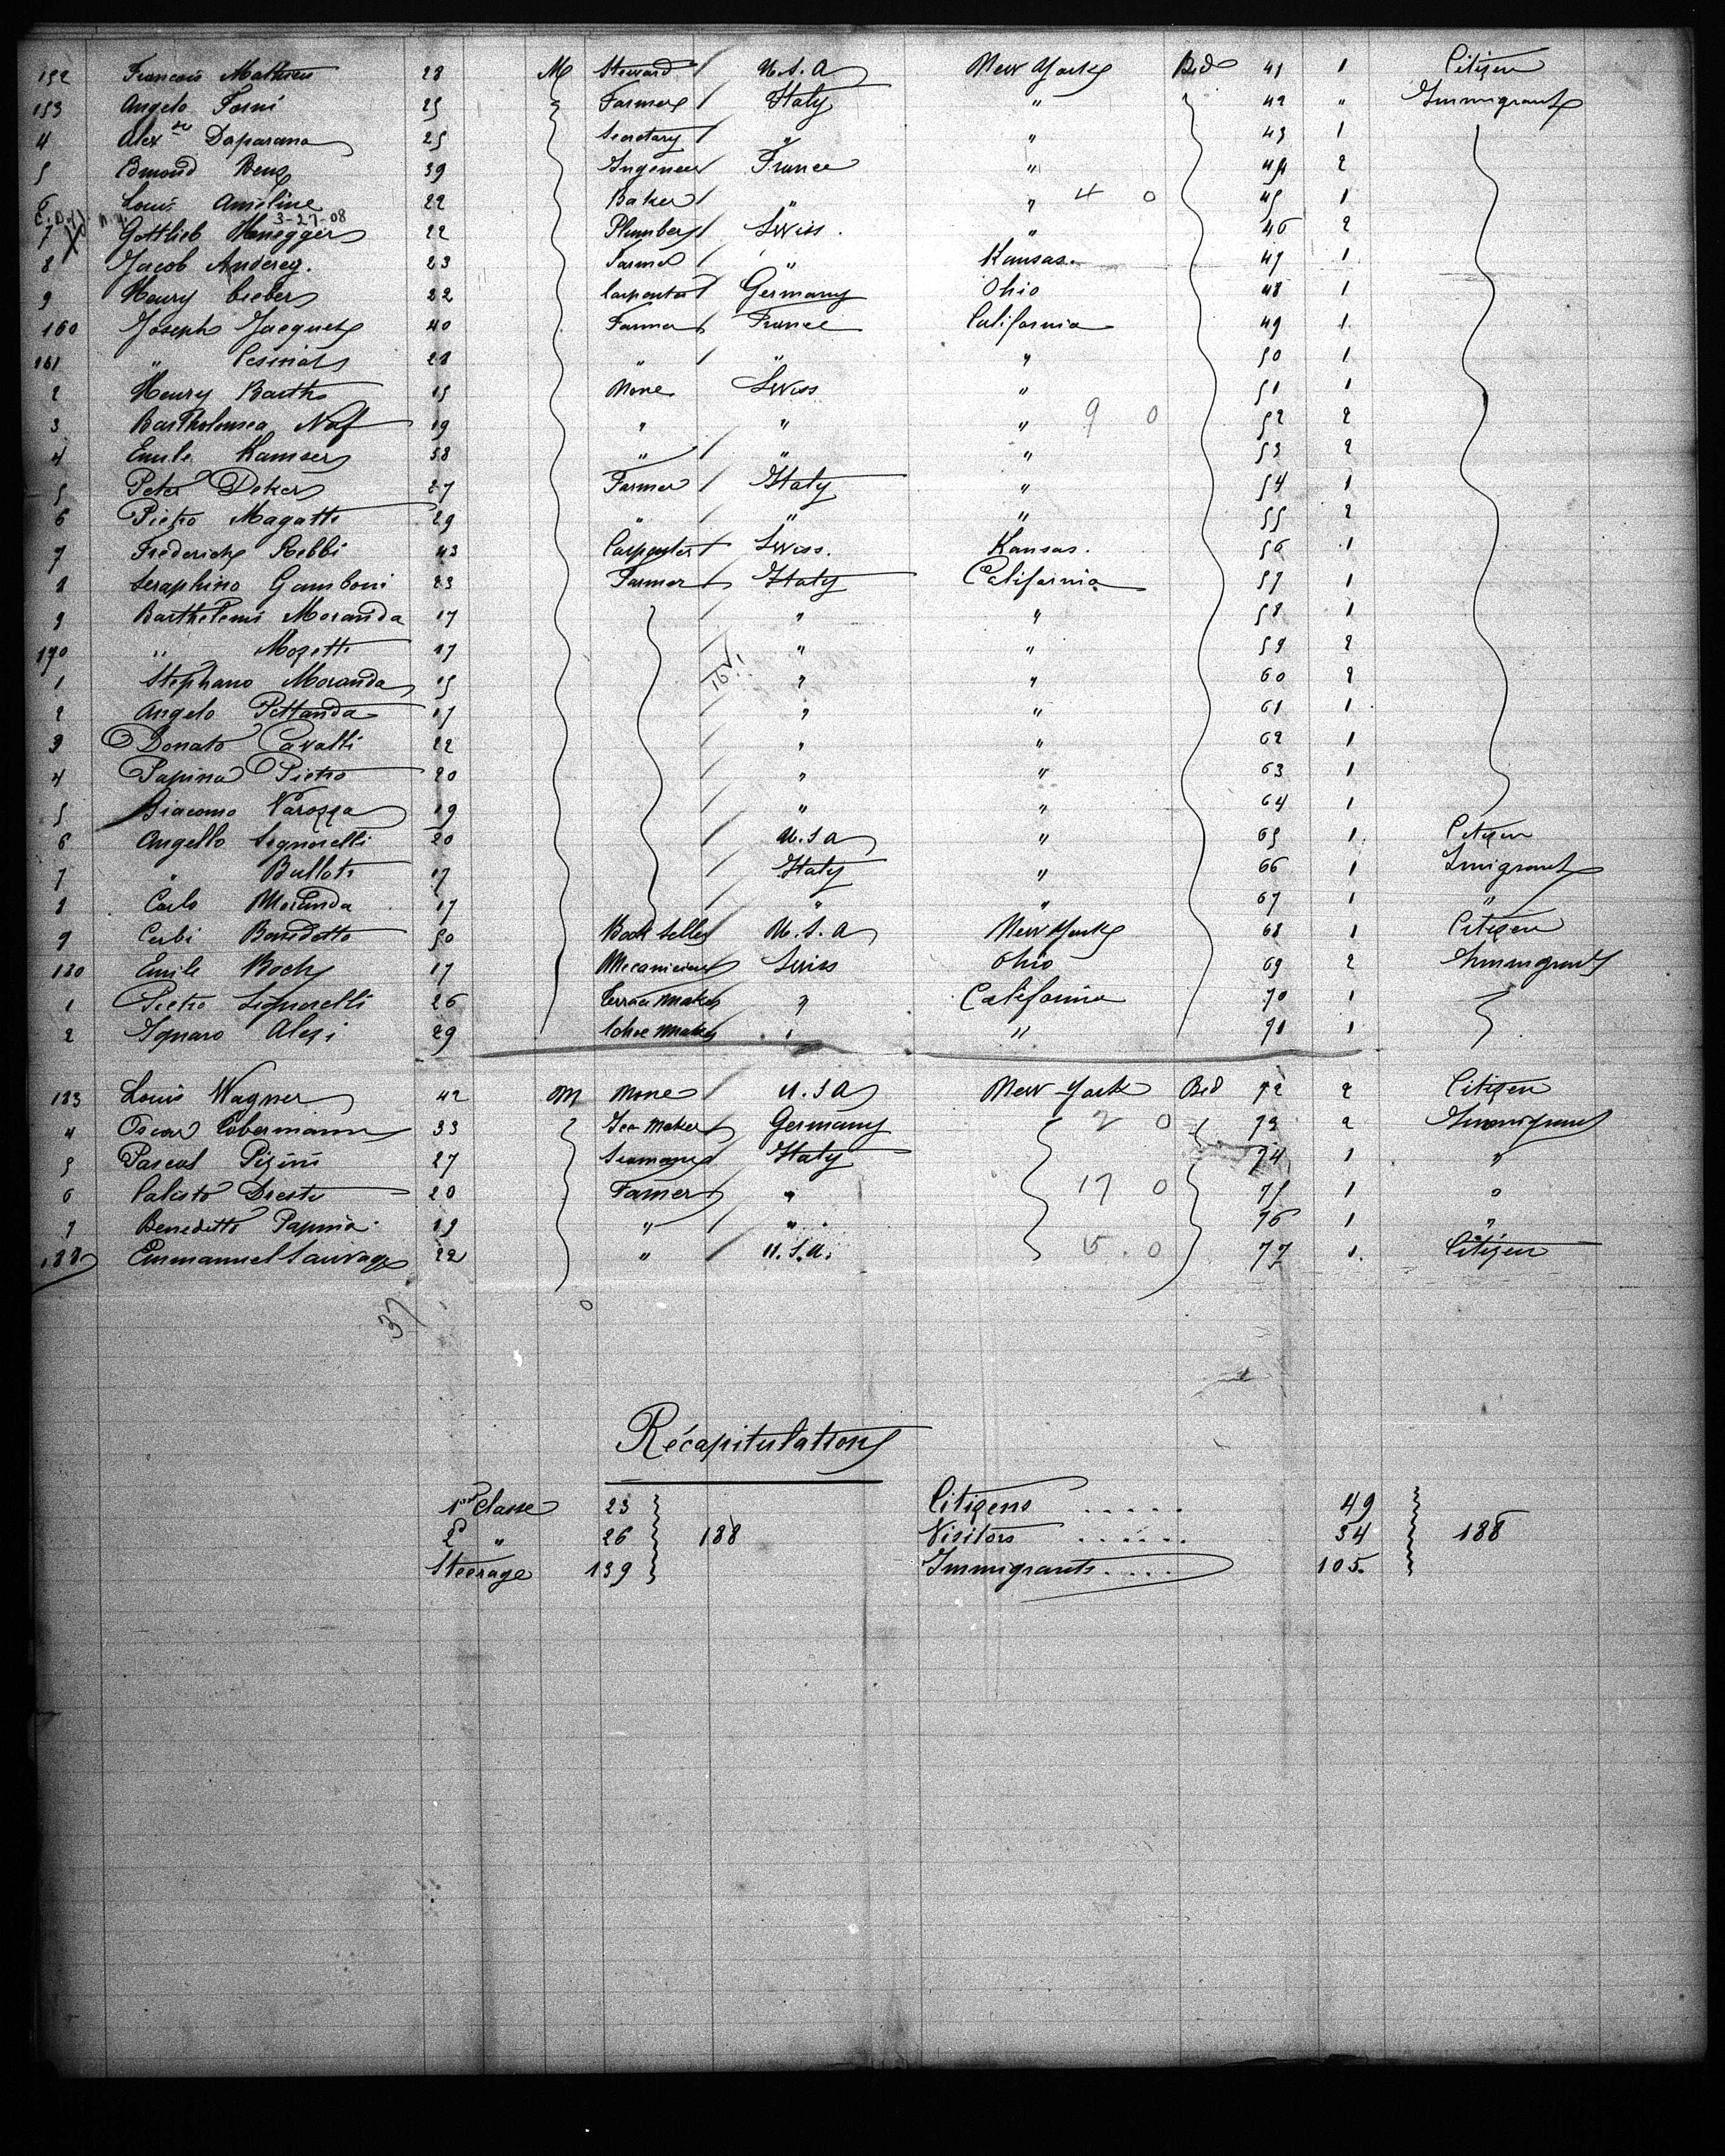 152 Francois Mathieu 28 M Steward / U.S.A New York Bed 41 1 Citizen
153 Angelo Forni 25 Farmer / Italy " 42 " Immigrant
4 Alex dre Daparana 25 Secretary / " " 43 1
5 Edmond Benz 39 Ingeneer / France " 44 2
6 Louis Ameline 22 Baker / " " 4 0 45 1
3-27-08
7 Gottlieb Honegger 22 Plumber / Swiss. " 46 2
8 Jacob Anderey. 23 Farmer / " Kansas. 47 1
9 Henry Cieber 22 Carpenter / Germany Ohio 48 1
160 Joseph Jacquet 40 Farmer / France California 49 1.
161 " 28 " / " " 50 1
2 Henry Barth 15 None Swiss " 51 1
3 Bartholomea Naf 19 " " " 9 0 52 2
4 Emile Kamser 38 " / " " 53 2
5 Peter Deker 27 Farmer / Italy " 54 1
6 Pietro Magatti 29 " / " " 55 2
7 Frederick Rebbi 43 Carpenter / Swiss. Kansas. 56 1
8 Seraphino Gamboni 23 Farmer / Italy California 57 1
9 Barthelemi Moranda 17 / " " 58 1
170 " Mozetti 17 / " " 59 2
1 Stephano Moranda 15 / " " 60 2
2 Angelo Pettanda 17 / " " 61 1
3 Donato Cavalli 22 / " " 62 1
4 Papina Pietro 20 / " " 63 1
5 Giacomo Varozza 19 / " " 64 1
6 Angello Signorelli 20 / U.S.A " 65 1 Citizen
7 " Bulloti 17 / Italy " 66 1 Imigrant
8 Carlo Moranda 17 / " " 67 1 "
9 Cerbi Benedetto 50 Book Seller U.S.A New York 68 1 Citizen
180 Emile Boch 17 Mecanicien Swiss Ohio 69 2 Immigrant
1 Pietro Signorelli 26 Terrace maker " California 70 1
2 Ignaro Alezi 29 Schoe maker " " 71 1
183 Louis Wagner 42 M None / U.S.A New-York Bed 72 2 Citizen
4 Oscar Cobermann 33 Ice Maker / Germany 2 0 73 2 Immigrant
5 Pascal Pizini 27 Seaman Italy 74 1 "
6 Calisto Dresti 20 Farmer / " 17 0 75 1 "
7 Benedetto Papina 19 " / " 76 1 "
188 Emmanuel Sauvage 22 " / U.S.A. 5.0 77 1. Citizen
37
0
Récapitulation
1ere Classe 23 Citizens ..... 49
2d " 26 188 Visitors ...... 34 188
Steerage 139 Immigrants .... 105.